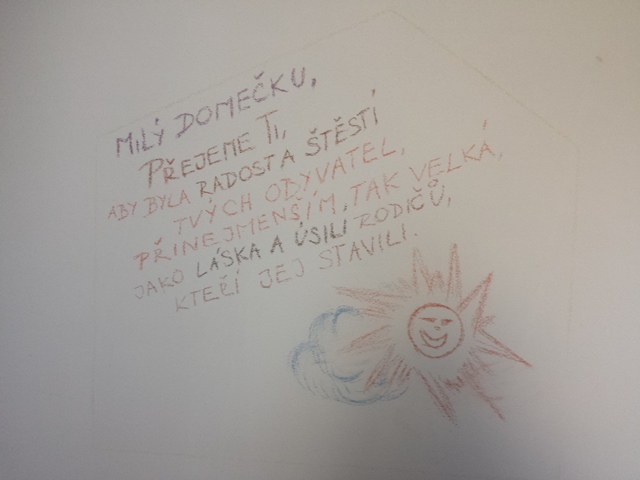 MILÝ DOMEČKU,
PŘEJEME TI,
ABY BYLA RADOST A ŠTĚSTÍ
TVÝCH ODYVATEL,
PŘINEJMENŠÍM, TAK VELKÁ,
JAKO LÁSKA A ÚSILÍ RODIČŮ,
KTEŘÍ JEJ STAVILI.